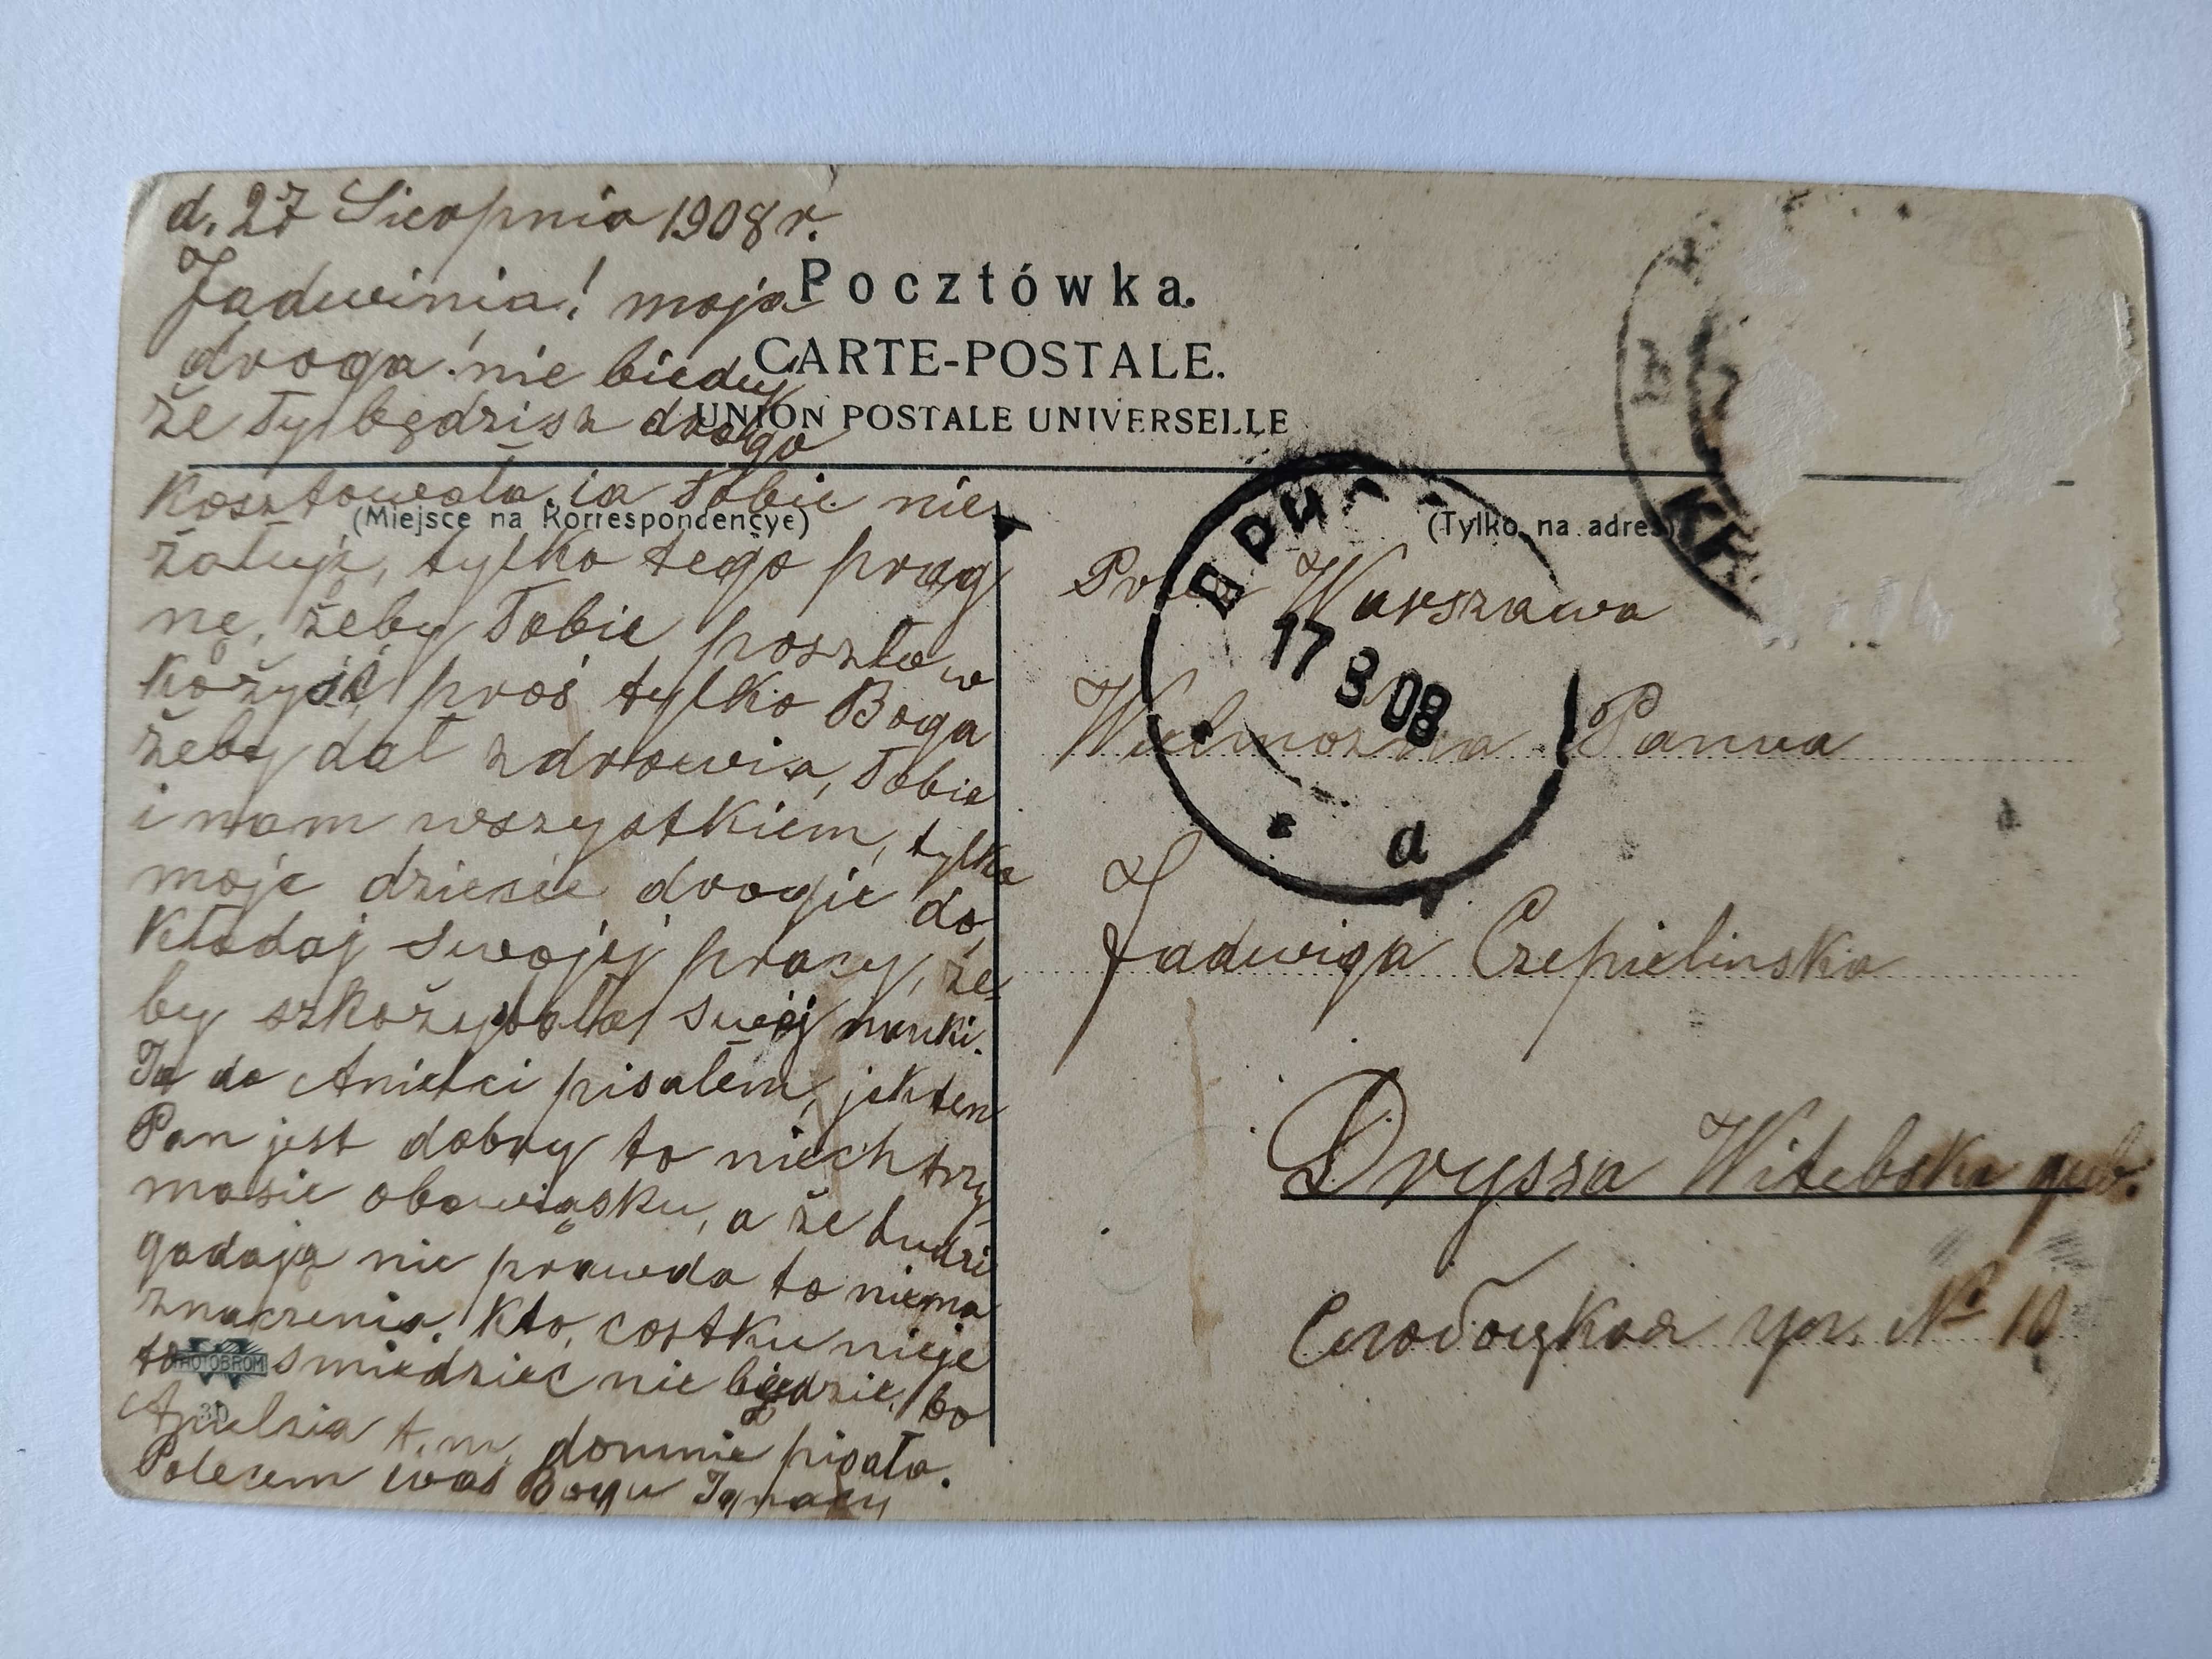 d. 27 Sierpnia 1908 r.
Jadwinia! moja
droga! nie bieduj
że Ty będzisz drogo
Kosztowała, ja Tobie nie
żałuję, tylko tego prag
nę, żeby Tobie poszło w
kożyść, proś tylko Boga
żeby dał zdrowia, Tobie
i nam wszystkiem, tylko
moje dziecie drogie do,
Kładaj swojej pracy, że,
by szkożystała swej nauki.
Ja do Anielci pisałem, jak ten
Pan jest dobry to niech trzy
masie obowiąsku, a że ludzi
gadają nie prawda to niema
znaczenia. Kto, costku nieje
to smiedzieć nie będzie, bo
Anielsia t. m. domnie pisała.
Polecem was Bogu Ignacy
Pocztówka.
CARTE-POSTALE.
UNION POSTALE UNIVERSELLE
(Miejsce na Korrespondencye)
(Tylko na adres)
PHOTOBROM
30
ДРИ
17 8 08
a
Warszawa
Wielmożna Panna
Jadwiga Czepielinska
Dryssa Witebska gub.
Слободская ул. № 10